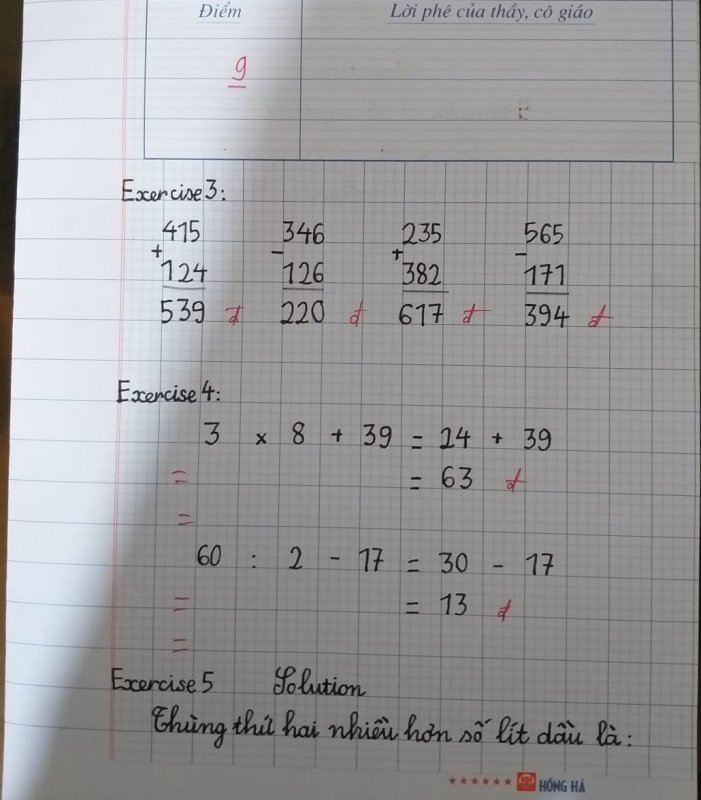 Điểm Lời phê của thầy, cô giáo
9
Exercise 3:
415 346 235 565
+ - + -
124 126 382 171
539 đ 220 đ 617 đ 394 đ
Exercise 4:
3 x 8 + 39 = 24 + 39
= = 63 đ
=
60 : 2 - 17 = 30 - 17
= = 13 đ
=
Exercise 5 Solution
Thùng thứ hai nhiều hơn số lít dầu là:
HH HỒNG HÀ